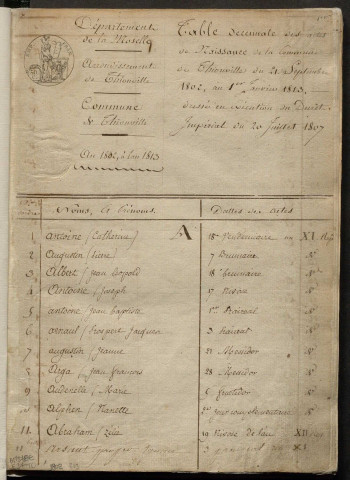 Département
de la Moselle
Arrondissement
de Thionville
Commune
de Thionville
An 1802, à l'an 1813
Table décennale des actes
de Naissance de la Commune
de Thionville du 21 Septembre
1802, au 1er Janvier 1813,
dressée en exécution du Décret
Impérial du 20 Juillet 1807
Noms, et Prénoms. Dattes des actes
A
1 Antoine (Catherine) 18 Vendemiaire an XI
2 Augustin (Pierre) 7 Brumaire
3 Albert (Jean Leopold) 18 Brumaire
4 Antoine (Joseph) 17 Nivose
5 antoine (Jean baptiste) 1er Prairial
6 arnaul (Prospert Jacques) 3 prairial
7 augustin (Jeanne) 23 Messidor
8 Arga (Jean francois) 28 Messidor
9 (Marie) 6 fructidor
10 Alghen (Nanette) complementaire
11 Abraham (Zélie) 19 Nivose de l'an XII